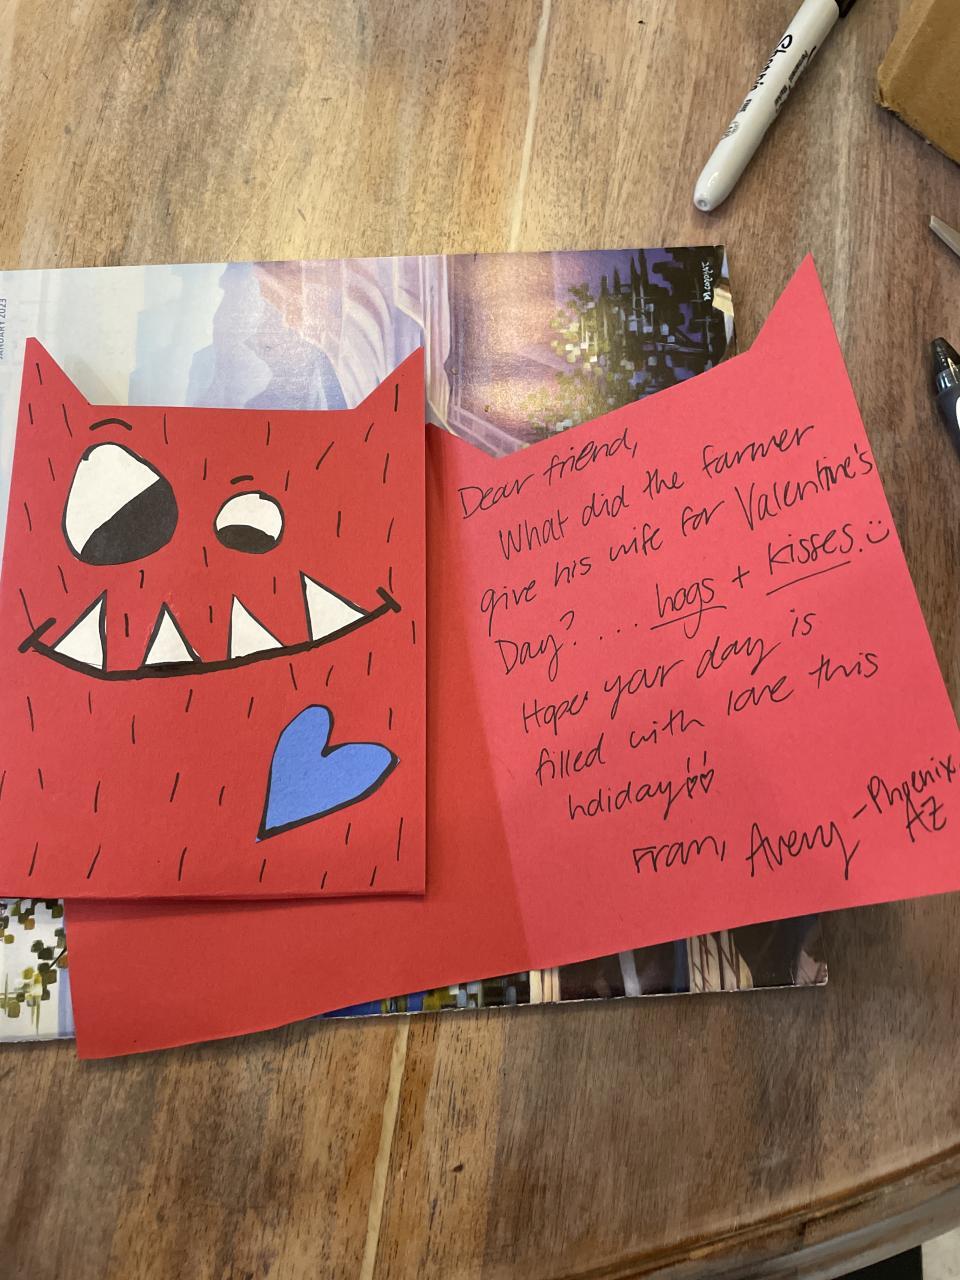 Sharpie
JANUARY 2023
Dear friend,
What did the farmer
give his wife for Valentine's
Day? .... hogs + kisses. :)
Hope your day is
filled with love this
holiday!!
From, Avery - Phoenix,
AZ